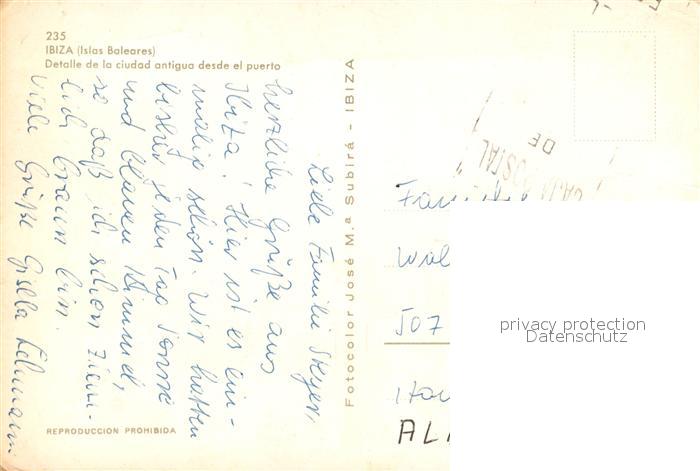 235
IBIZA (Islas Baleares)
Detalle de la ciudad antigua desde el puerto
Liebe Familie
herzliche Grüße aus
Ibiza! Hier ist es ein-
malig schön. Wir hatten
bisher jeden Tag Sonne
und blauen Himmel,
so daß ich schon ziem-
lich braun bin.
Viele Grüße Gisela Lehmann
REPRODUCCION PROHIBIDA
Fotocolor José M.ª Subirá - IBIZA
CAJA POSTAL
DE
Fam
Wil
507
privacy protection
Datenschutz
AL